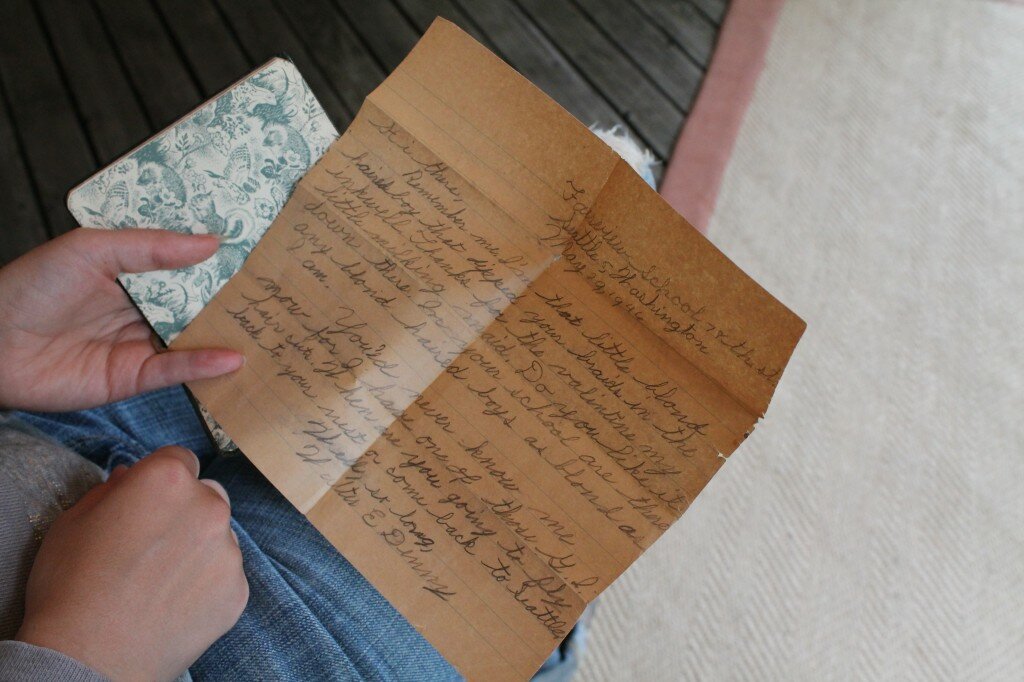 School
Seattle 5 Washington
May 9, 1946
Hi there,
Remember me that little blond
haired boy that your braids in the
inkwell. Thanks for the valentine, my
little maid. Do you like it
down there in your school are there
any blond haired boys as blond as
I am.
You'd have never know me
you for I have one of those G I
hair cuts. When are you going to fly
back to your nest come back to Seattle
so long,
E Denny